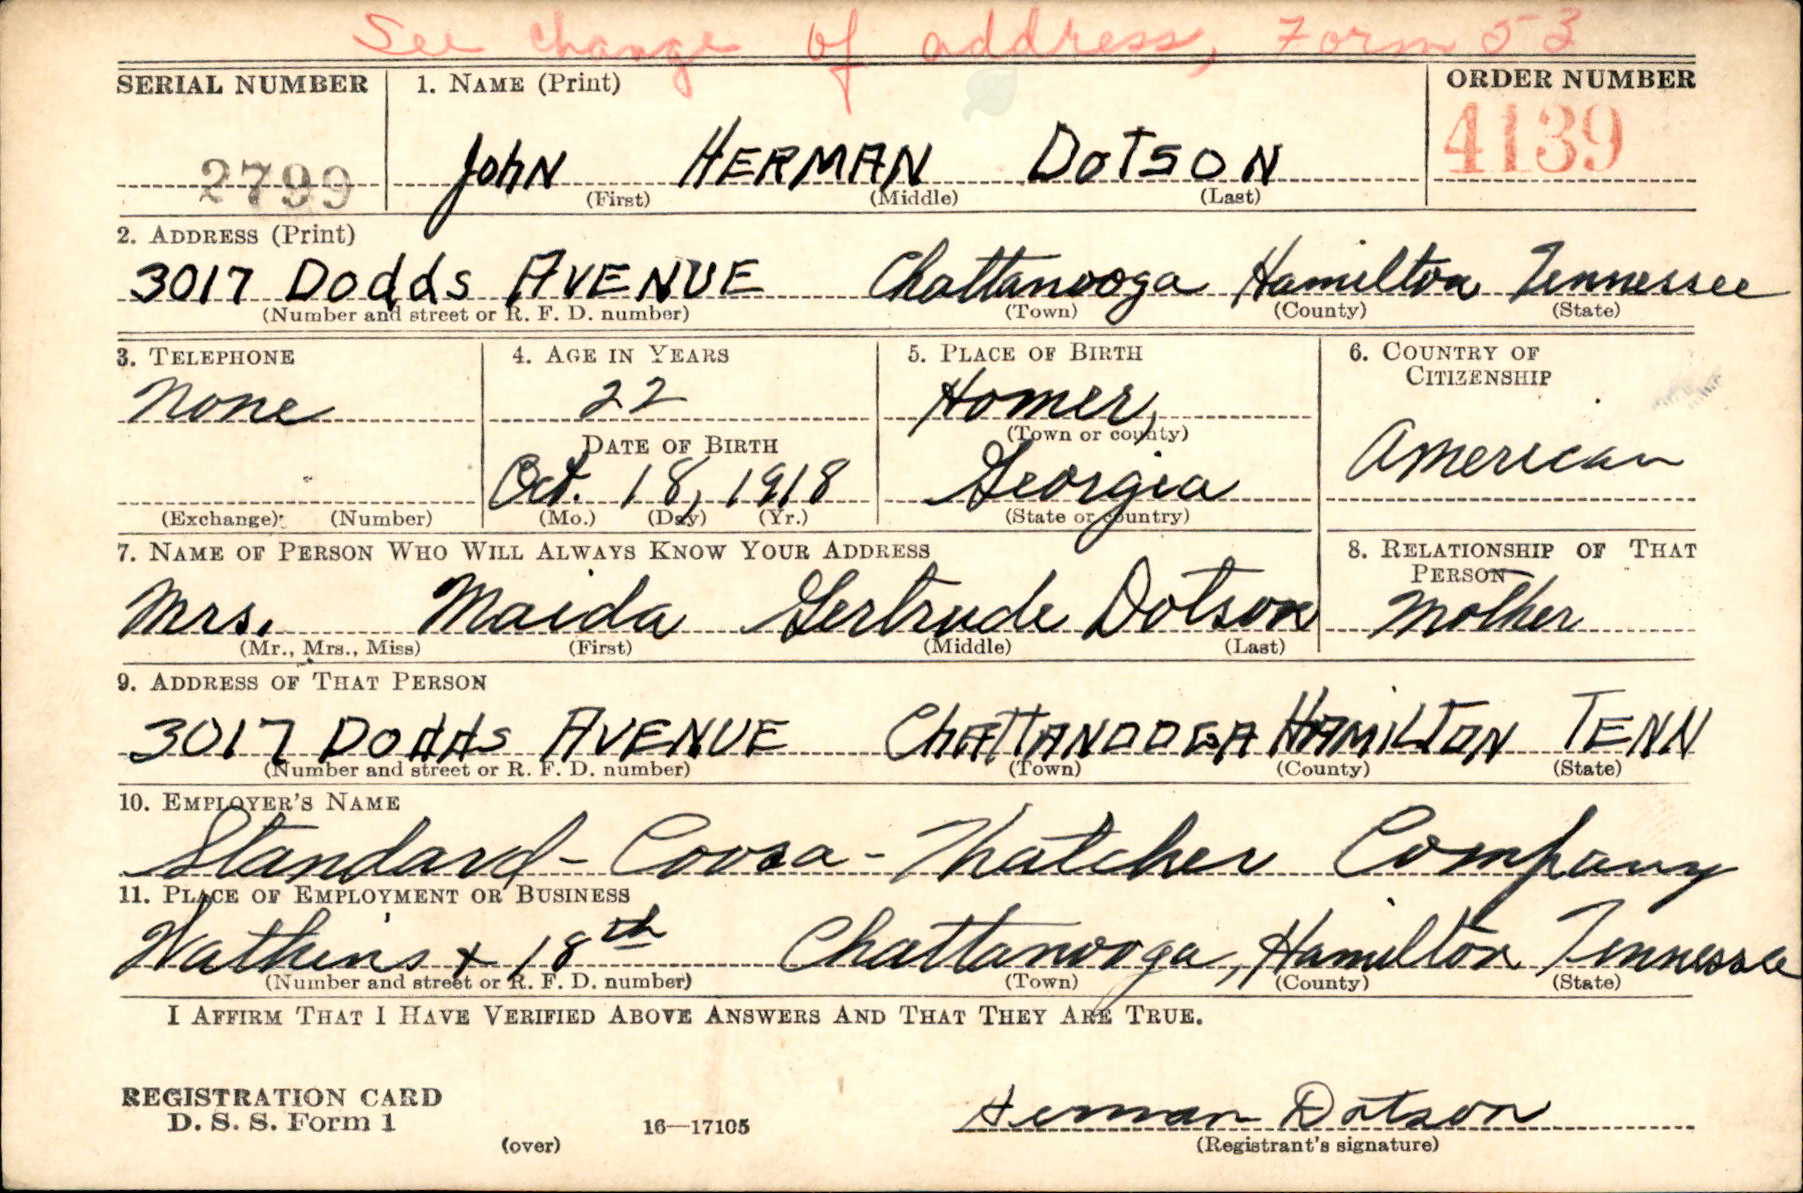 See change of address, Form 53
SERIAL NUMBER
1. NAME (Print)
ORDER NUMBER
2799
John HERMAN DOTSON
4139
(First) (Middle) (Last)
2. ADDRESS (Print)
3017 Dodds AVENUE Chattanooga Hamilton Tennessee
(Number and street or R. F. D. number) (Town) (County) (State)
3. TELEPHONE
4. AGE IN YEARS
5. PLACE OF BIRTH
6. COUNTRY OF
CITIZENSHIP
None
22
Homer,
(Town or county)
DATE OF BIRTH
American
Oct. 18, 1918
Georgia
(Exchange) (Number)
(Mo.) (Day) (Yr.)
(State or country)
7. NAME OF PERSON WHO WILL ALWAYS KNOW YOUR ADDRESS
8. RELATIONSHIP OF THAT
PERSON
Mrs. Maida Gertrude Dotson
Mother
(Mr., Mrs., Miss) (First) (Middle) (Last)
9. ADDRESS OF THAT PERSON
3017 Dodds AVENUE ChATTANOOGA HAMILTON TENN
(Number and street or R. F. D. number) (Town) (County) (State)
10. EMPLOYER'S NAME
Standard-Coosa-Thatcher Company
11. PLACE OF EMPLOYMENT OR BUSINESS
Watkins + 18th Chattanooga, Hamilton Tennessee
(Number and street or R. F. D. number) (Town) (County) (State)
I AFFIRM THAT I HAVE VERIFIED ABOVE ANSWERS AND THAT THEY ARE TRUE.
REGISTRATION CARD
D. S. S. Form 1
(over)
16—17105
Herman Dotson
(Registrant's signature)